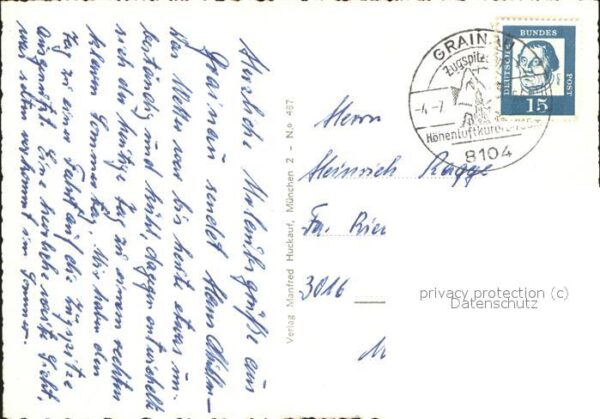 Herzliche Urlaubsgrüße aus
Grainau sendet Hans
Das Wetter war bis heute etwas un-
beständig und kühl, dagegen entwickelt
sich der heutige Tag zu einem rechten
klaren Sommertag. Wir haben den
Tag zu einer Fahrt auf die Zugspitze
ausgenützt. Eine herrliche weite Sicht,
was selten vorkommt im Sommer.
Verlag Manfred Huckauf, München 2 - No 467
GRAINAU
Zugspitze
-4.-7
Höhenluftkurort
8104
DEUTSCHE
BUNDES
POST
15
Herrn
Heinrich Ragge
Fa. Rie
3016
privacy protection (c)
Datenschutz